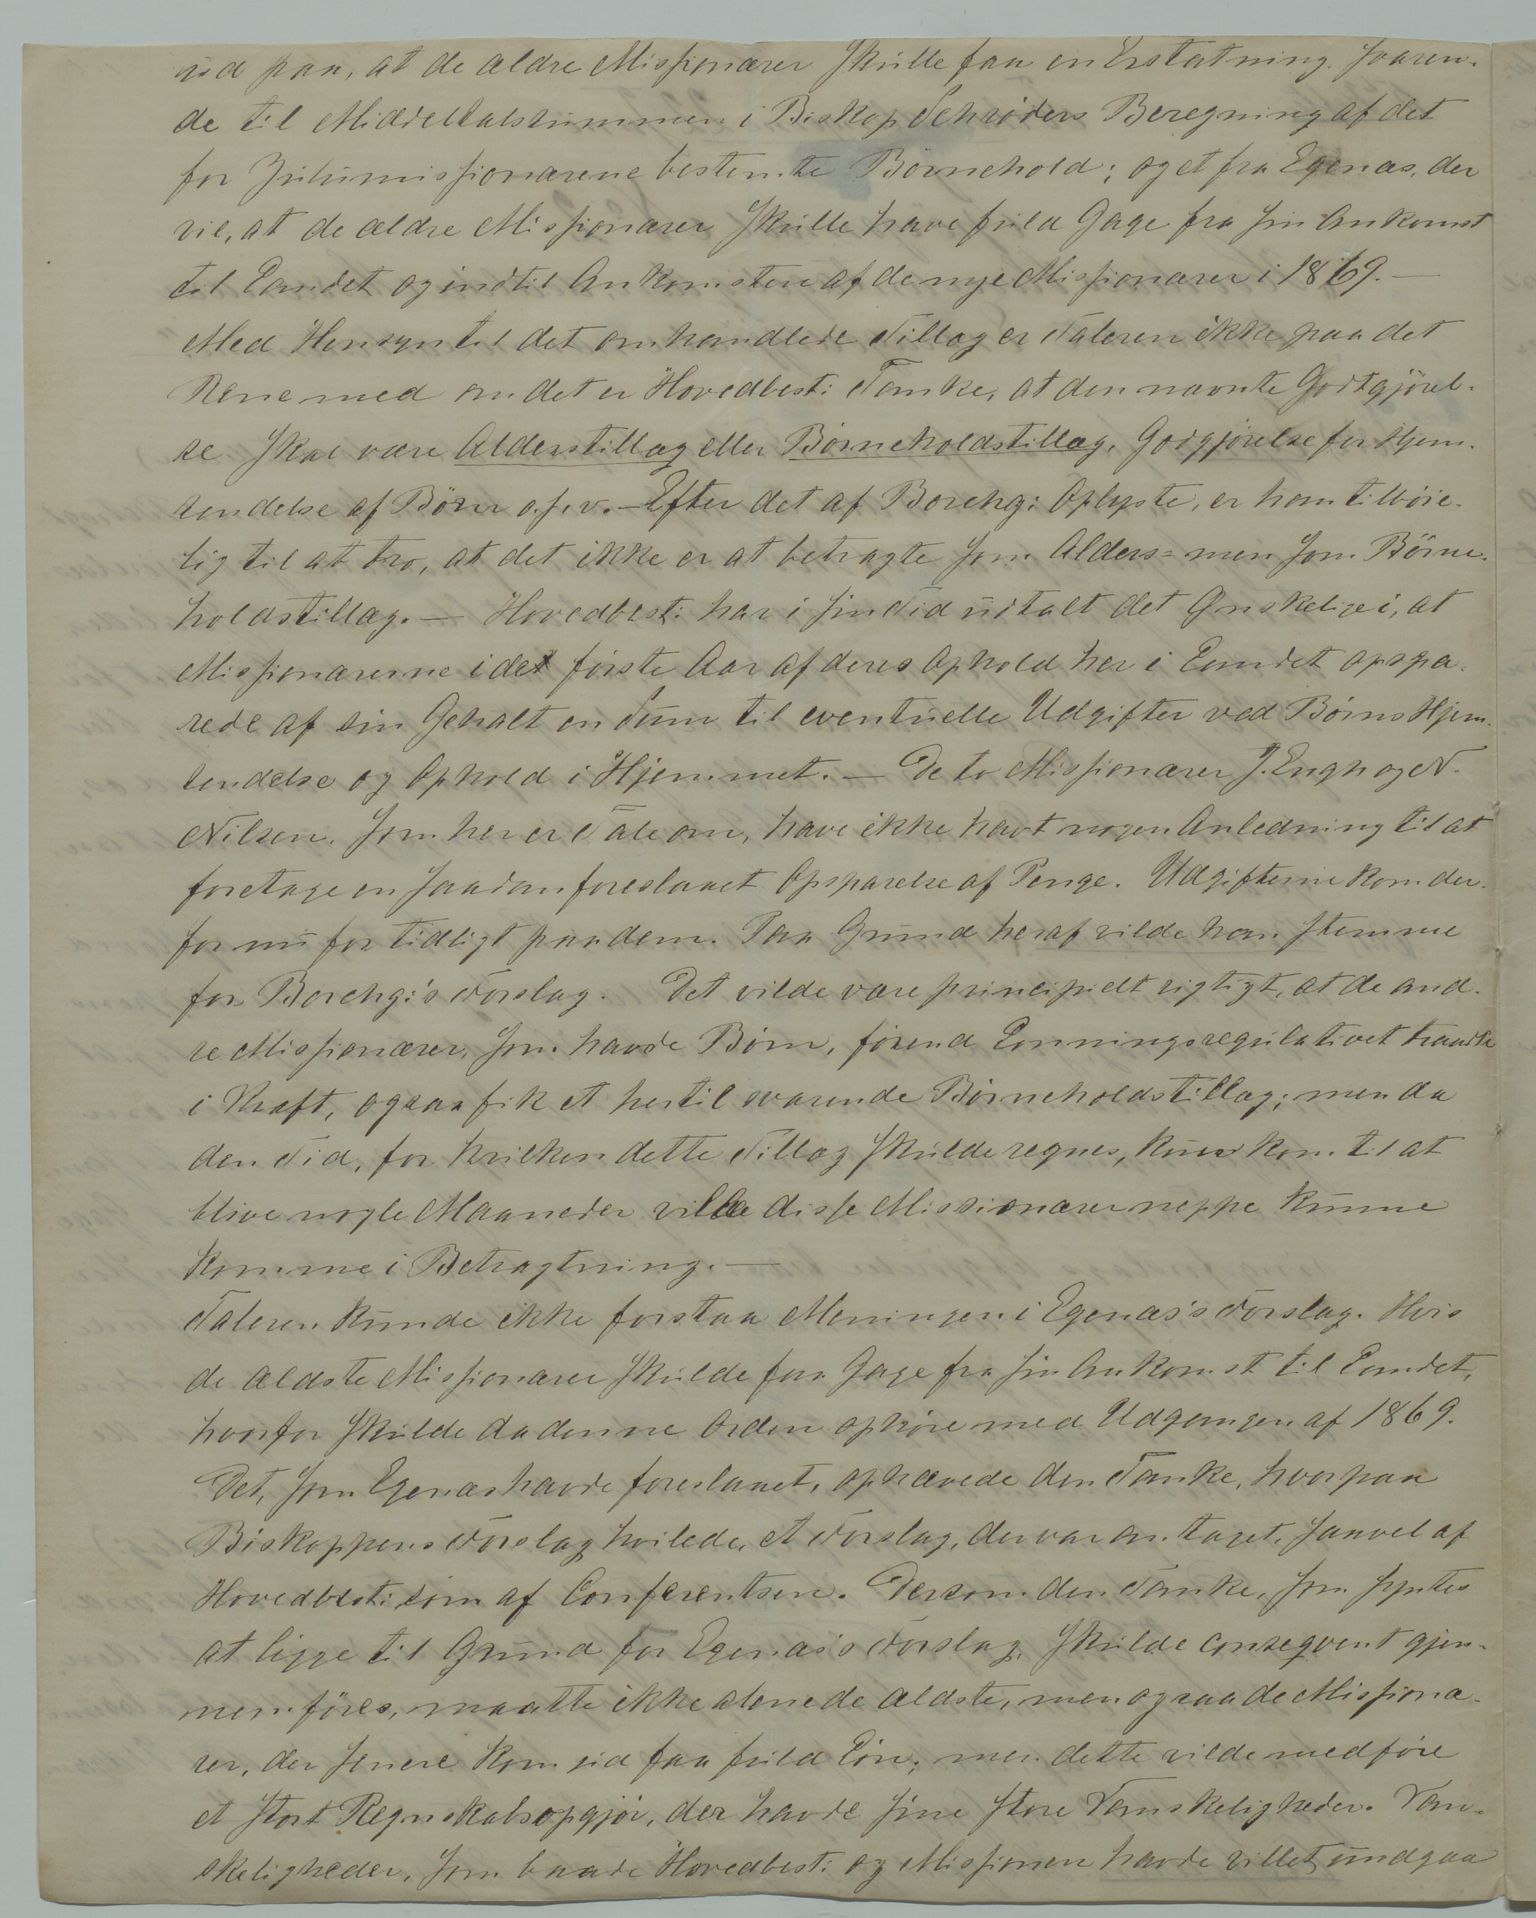 ud paa, at de ældre Missionærer skulle faa en Erstatning svaren-
de til Middeltalssummen i Biskop Schrøders Beregning af det
for Zulumissionærene bestemte Børnehold; og et fra Egenæs, der
vil, at de ældre Missionærer skulle have fuld Gage fra sin Ankomst
til Landet og indtil Ankomsten af de nye Missionærer i 1869. —
Med Hensyn til det omhandlede Tillæg er Taleren ikke paa det
Rene med om det er Hovedbest: Tanke, at den nævnte Godtgjørel-
se skal være Alderstillæg eller Børneholdstillæg, Godgjørelse for Hjem-
sendelse af Børn o.s.v. — Efter det af Borchg: Oplyste, er han tilbøie-
lig til at tro, at det ikke er at betragte som Alders= men som Børne-
holdstillæg. — Hovedbest: har i sin Tid udtalt det Ønskelige i, at
Missionærerne i det første Aar af deres Ophold her i Landet opspa-
rede af sin Gehalt en Sum til eventuelle Udgifter ved Børns Hjem-
sendelse og Ophold i Hjemmet. — De to Missionærer J. Engh og N.
Nilsen, som her er Tale om, have ikke havt nogen Anledning til at
foretage en saadan foreslaaet Opsparelse af Penge. Udgifterne kom der-
for nu for tidligt paa dem. Paa Grund heraf vilde han stemme
for Borchg:'s Forslag. Det vilde være principielt rigtigt, at de and-
re Missionærer, som havde Børn, førend Lønningsregulativet traadte
i Kraft, ogsaa fik et hertil svarende Børneholdstillæg; men da
den Tid, for hvilken dette Tillæg skulde regnes, kun kom til at
blive nogle Maaneder ville disse Missionærer neppe kunne
komme i Betragtning. —
Taleren kunde ikke forstaa Meningen i Egenæs's Forslag. Hvis
de ældste Missionærer skulde faa Gage fra sin Ankomst til Landet,
hvorfor skulde da denne Orden ophøre med Udgangen af 1869.
Det, som Egenæs havde foreslaaet, ophævede den Tanke, hvorpaa
Biskoppens Forslag hvilede, et Forslag, der var antaget, saavel af
Hovedbest: som af Conferentsen. Dersom den Tanke, som syntes
at ligge til Grund for Egenæs's Forslag, skulde conseqvent gjen-
nemføres, maatte ikke alene de ældste, men ogsaa de Missionæ-
rer, der senere kom ud faa fuld Løn; men dette vilde medføre
et stort Regnskabsopgjør, der havde sine store Vanskeligheder. Van-
skeligheder, som baade Hovedbest: og Missionen havde villet undgaa